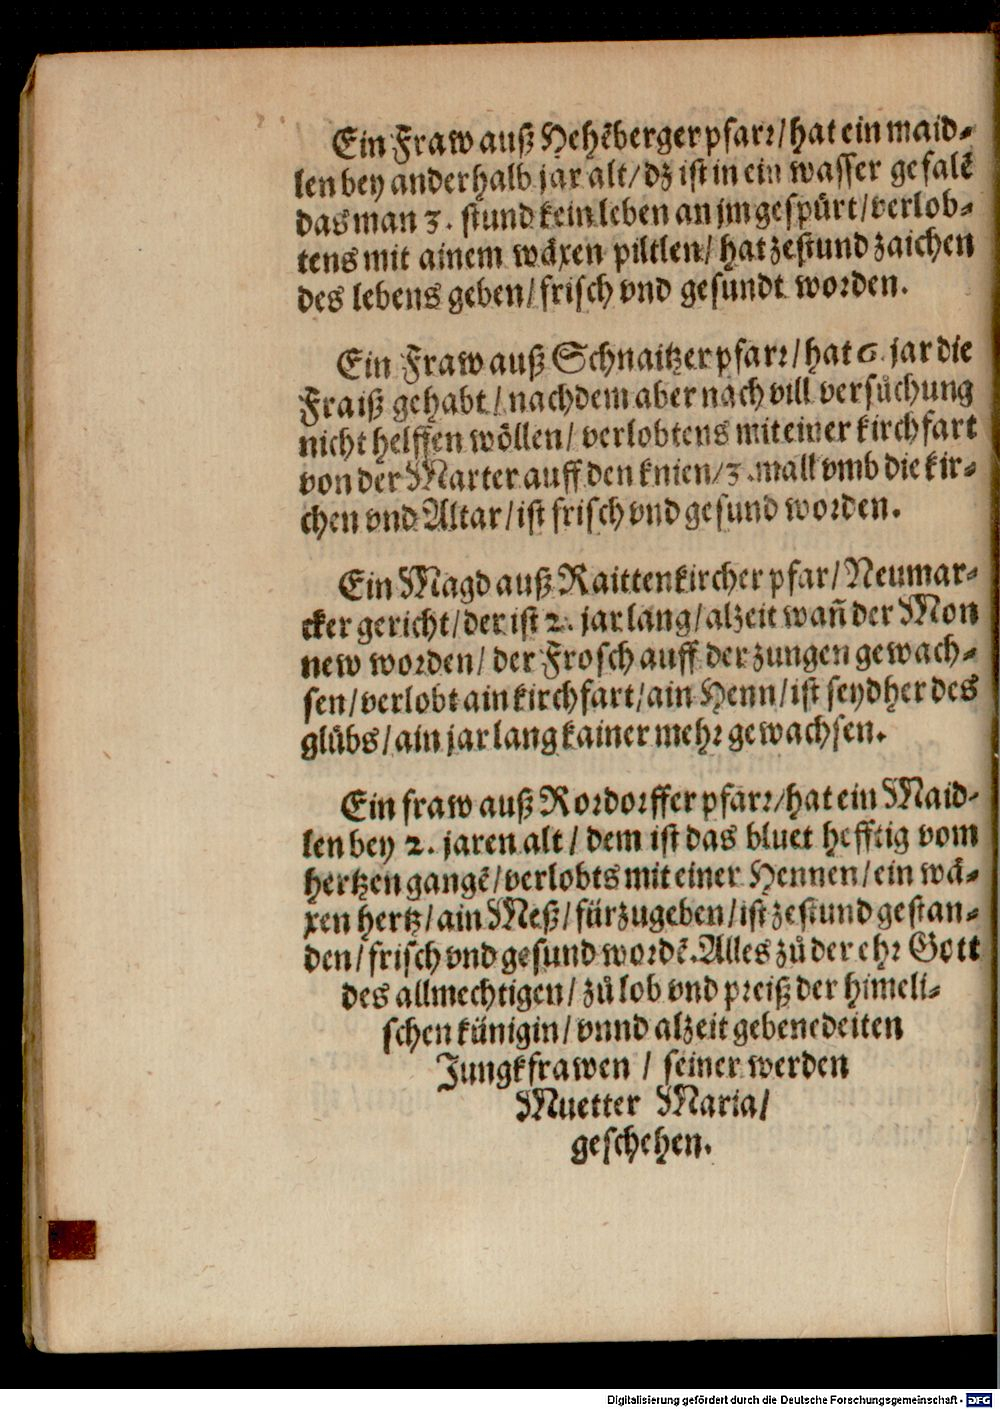 Ein Fraw auß Hehēberger pfarr/hat ein maid-
len bey anderhalb jar alt/dz ist in ein wasser gefalē
das man 3. stund kein leben an jm gespürt/verlob-
tens mit ainem wäxen piltlen/hat zestund zaichen
des lebens geben/frisch vnd gesundt worden.
Ein Fraw auß Schnaitzer pfarr/hat 6. jar die
Fraiß gehabt/nachdem aber nach vill versůchung
nicht helffen wöllen/verlobtens mit einer kirchfart
von der Marter auff den knien/3. mall vmb die kir-
chen vnd Altar/ist frisch vnd gesund worden.
Ein Magd auß Raittenkircher pfar/Neumar-
cker gericht/der ist 2. jar lang/alzeit wañ der Mon
new worden/der Frosch auff der zungen gewach-
sen/verlobt ain kirchfart/ain Henn/ist seydher des
glübs/ain jar lang kainer mehr gewachsen.
Ein fraw auß Rordorffer pfarr/hat ein Maid-
len bey 2. jaren alt/dem ist das bluet hefftig vom
hertzen gangē/verlobts mit einer Hennen/ein wä-
xen hertz/ain Meß/fürzugeben/ist zestund gestan-
den/frisch vnd gesund wordē. Alles zů der ehr Gott
des allmechtigen/zů lob vnd preiß der himeli-
schen künigin/vnnd alzeit gebenedeiten
Jungkfrawen/seiner werden
Muetter Maria/
geschehen.
Digitalisierung gefördert durch die Deutsche Forschungsgemeinschaft - DFG